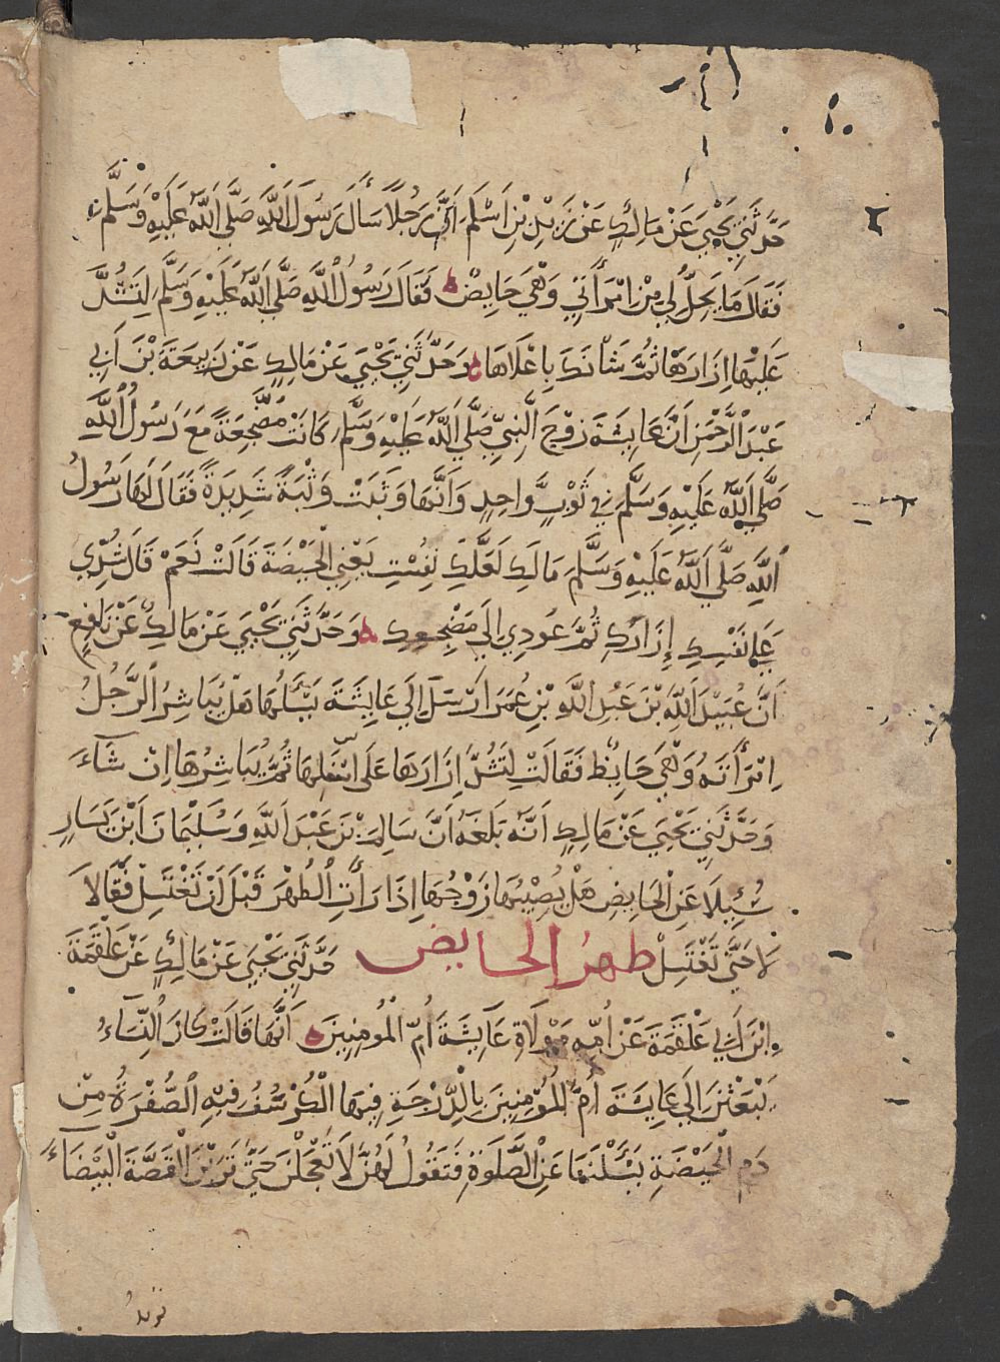 حَدَّثَنِي يَحْيَى عَنْ مَالِكٍ عَنْ زَيْدِ بْنِ اَسْلَمَ اَنَّ رَجُلًا سَاَلَ رَسُولَ اَللَّهِ صَلَّى اَللَّهُ عَلَيْهِ وَسَلَّمَ
فَقَالَ مَا يَحِلُّ لِي مِنْ امْرَأَتِي وَهْيَ حَايِضٌ فَقَالَ رَسُولُ اللَّهِ صَلَّى اَللَّهُ عَلَيْهِ وَسَلَّمَ لِتَشُدَّ
عَلَيْهَا اِزَارَهَا ثُمَّ شَأنَكَ بِاعْلَاهَا وَحَدَّثَنِي يَحْيَى عَنْ مَالِكٍ عَنْ رَبِيعَةَ بْنَ اَبِي
عَبْدِ الرَّحْمَنِ اَنَّ عَايِشَةَ زَوْجَ النَّبِيِّ صَلَّى اَللَّهُ عَلَيْهِ وَسَلَّمَ كَانَتْ مُضَّجِعَةً مَعَ رَسُولُ اللَّهِ
صَلَّى اَللَّهُ عَلَيْهِ وَسَلَّمَ فِي ثَوْبٍ وَّاحِدٍ وَاَنَّهَا وَثَبَتْ وَثْبَةً شَدِيدَةً فَقَالَ لَهَا رَسُولُ
اللَّهِ صَلَّى اَللَّهُ عَلَيْهِ وَسَلَّمَ مَالَكِ لَعَلَّكِ نَفِسْتِ يَعْنِي الْحَيْضَةَ قَالَتْ نَعَمْ قَالَ شُدِّي
عَلَى نَفْسِكِ إِزَارَكِ ثُمَّ عُودِي اِلَى مَضْجِعِكِ وَحَدَّثَنِي يَحْيَى عَنْ مَالِكٍ عَنْ نَافِعٍ
اَنَّ عُبَيْدَ اَللَّهِ بْنَ عَبْدِ اللَّهِ بْنِ عُمَرَ اَرْسَلَ اِلَى عَايِشَةَ يَسْئَلُهَا هَلْ يُبَاشِرُ الرَّجُلُ
اِمْرَأَتَهُ وَهْيَ حَايِظٌ فَقَالَتْ لِتَشُدَّ اِزَارَهَا عَلَى اسْفَلِهَا ثُمَّ يُبَاشِرُهَا اِنْ شَآءَ
وَحَدَّثَنِي يَحْيَى عَنْ مَالِكٍ اَنَّهُ بَلَغَهُ اَنَّ سَالِمَ بْنَ عَبْدَ اللَّهِ وَسُلَيْمَانَ اَبْنَ يَسَارٍ
سُئِيلَا عَنِ الْحَايِضِ هَلْ يُصِيْبُهَا زَوْجُهَا اِذَا رَأَتِ الْطُهْرَ قَبْلَ اَنْ تَغْتَسِلَ فَقَالَا
لَا حَتَّى تَغْتَسِلْ طهرُ الحايض حَدَّثَنِي يَحْيَى عَنْ مَالِكٍ عَنْ عَلْقَمَةَ
اِبْنَ اَبِي عَلْقَمَةَ عَنْ اُمِّهِ مَوْلَاةِ عَآيِشَةَ اُمِّ الْمُومِنِينَ اَنَّهَا قَالَتْ كَانَ الْنِّسَاءُ
يَبْعَثْنَ اِلَى عَايِشَةَ اُمِّ الْمُؤمِنِينَ بِالْدِّرْجَةِ فِيهَا الْكُرْسُفُ فِيهِ الْصُّفْرَةُ مِنْ
دَمِ الْحَيْضَةِ يَسْئَلْنَهَا عَنِ الْصَّلَوةِ فَتَقُولُ لَهُنَّ لَا تَعْجَلْنَ حَتَّى تَرَيْنَ الْقَصَّةَ الْبَيْضَآءَ
تريدُ